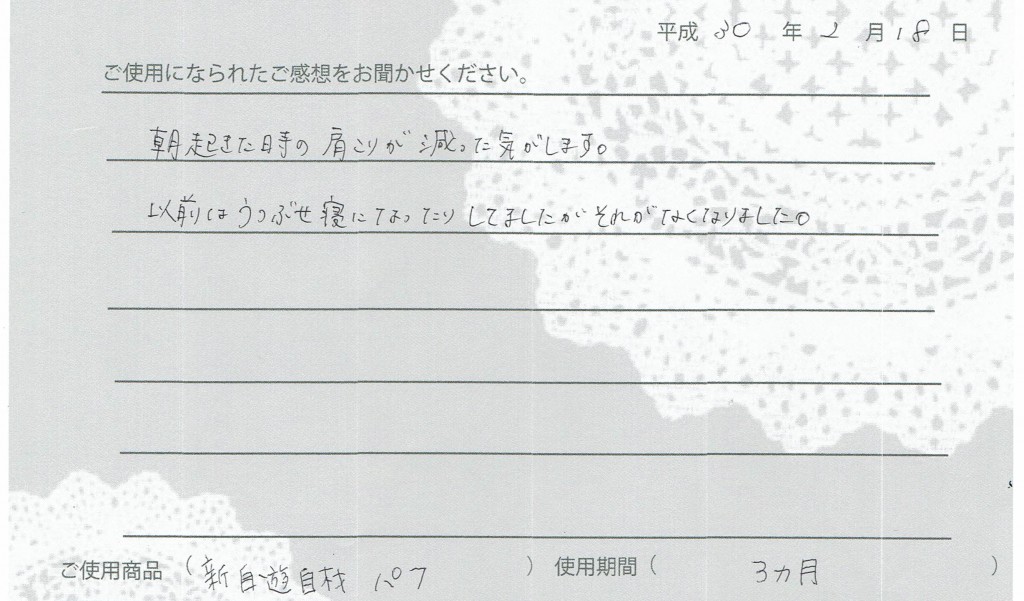 平成 30 年 2 月 18 日
ご使用になられたご感想をお聞かせください。
朝起きた時の肩こりが減った気がします。
以前はうつぶせ寝になったりしてましたがそれがなくなりました。
ご使用商品 ( 新自遊自材 パフ ) 使用期間 ( 3カ月 )